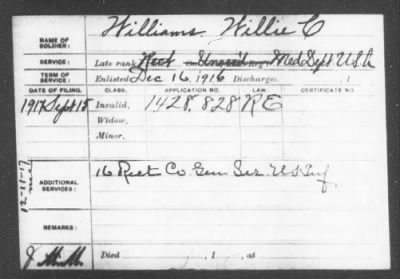 NAME OF SOLDIER: Williams, Willie C
SERVICE: Late rank Rect Unassd Med Dept U.S.A
TERM OF SERVICE: Enlisted Dec 16, 1916 Discharged , 1
DATE OF FILING. CLASS. APPLICATION NO. LAW. CERTIFICATE NO.
1917 Sept 15 Invalid, 1428.828 R E
Widow,
Minor,
12-11-17
ADDITIONAL SERVICES: 16 Rect Co Gen Ser. US Inf
REMARKS:
J.M.M. Died , 1 , at